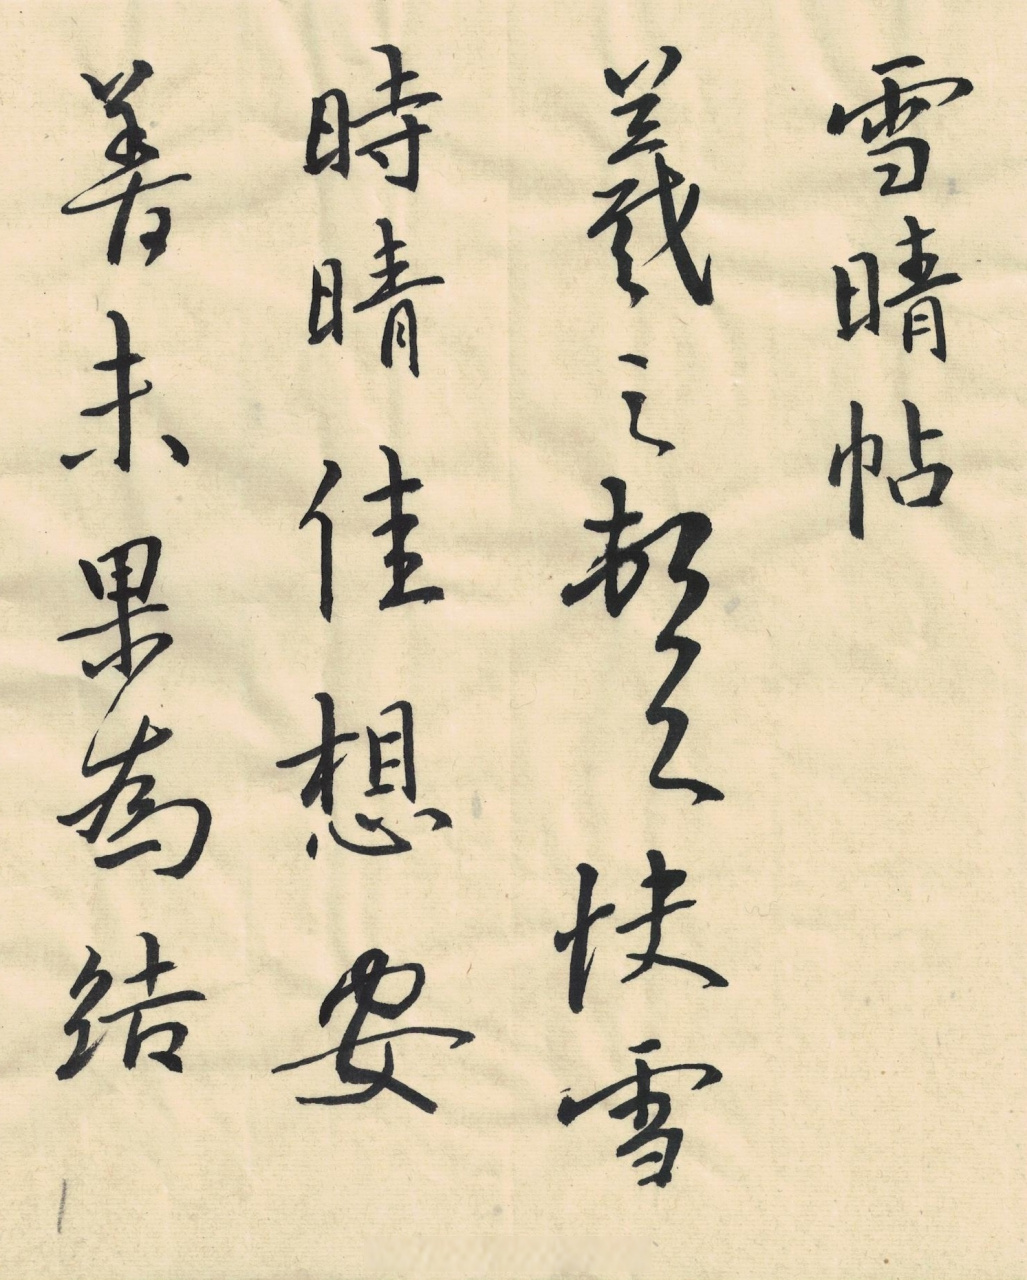 雪晴帖
羲之頓首快雪
時晴佳想安
善未果為結